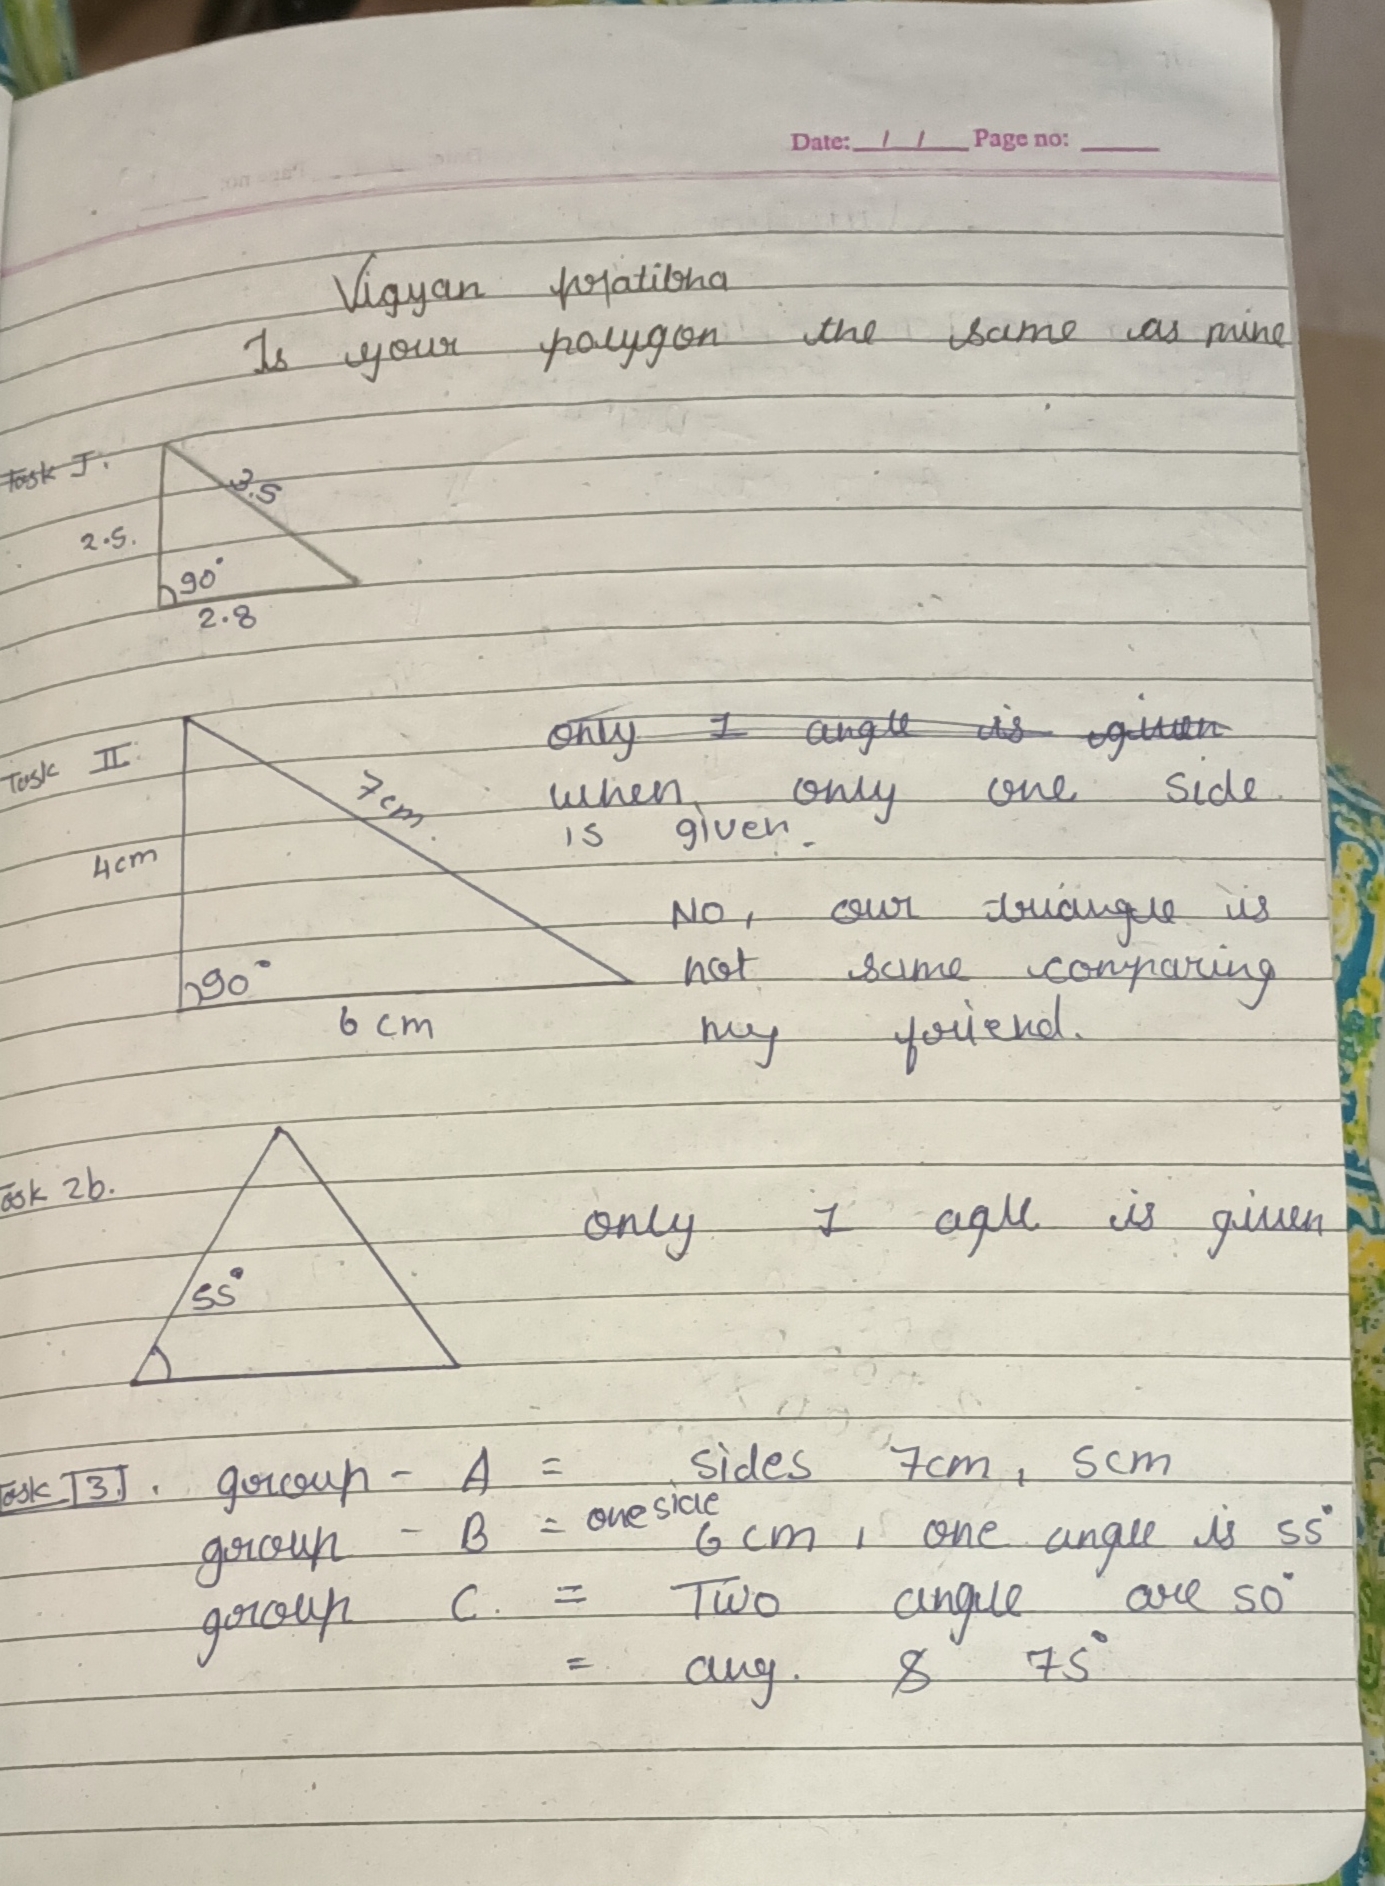 Date: / / Page no:
Vigyan pratibha
Is your polygon the same as mine
Task I.
3.5
2.5.
90°
2.8
Task II.
only 1 angle is given
7cm.
when only one side
is given.
4cm
No, our triangle is
not same comparing
90°
6 cm
my friend.
Task 2b.
only 1 agle is given
55°
Task 3. group - A = sides 7cm, 5cm
group - B = one side 6cm, one angle is 55°
group C. = Two angle are 50°
= ang. & 75°